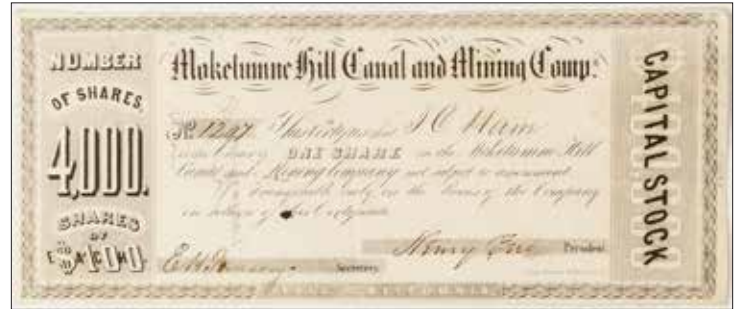 NUMBER
OF SHARES,
4,000.
SHARES
OF
$100
EACH.
Mokelumne Hill Canal and Mining Comp.
No. 1297. This certifies that
ONE SHARE in the Mokelumne Hill
Canal and Mining Company not subject to assessment
transferable only on the books of the Company
Secretary.
Henry President.
CAPITAL STOCK